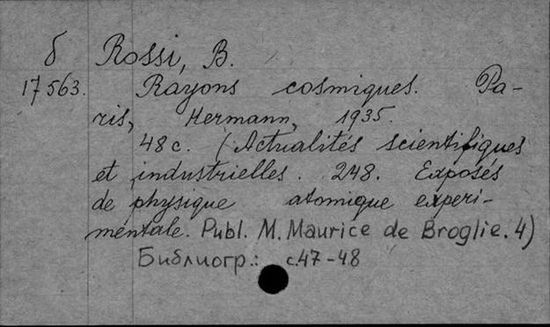 б Rossi, B.
17563. Rayons cosmiques. Pa-
ris, Hermann, 1935.
48 с. (Actualités scientifiques
et industrielles. 248. Exposés
de physique atomique experi-
mentale. Publ. M. Maurice de Broglie. 4)
Библиогр.: с.47-48